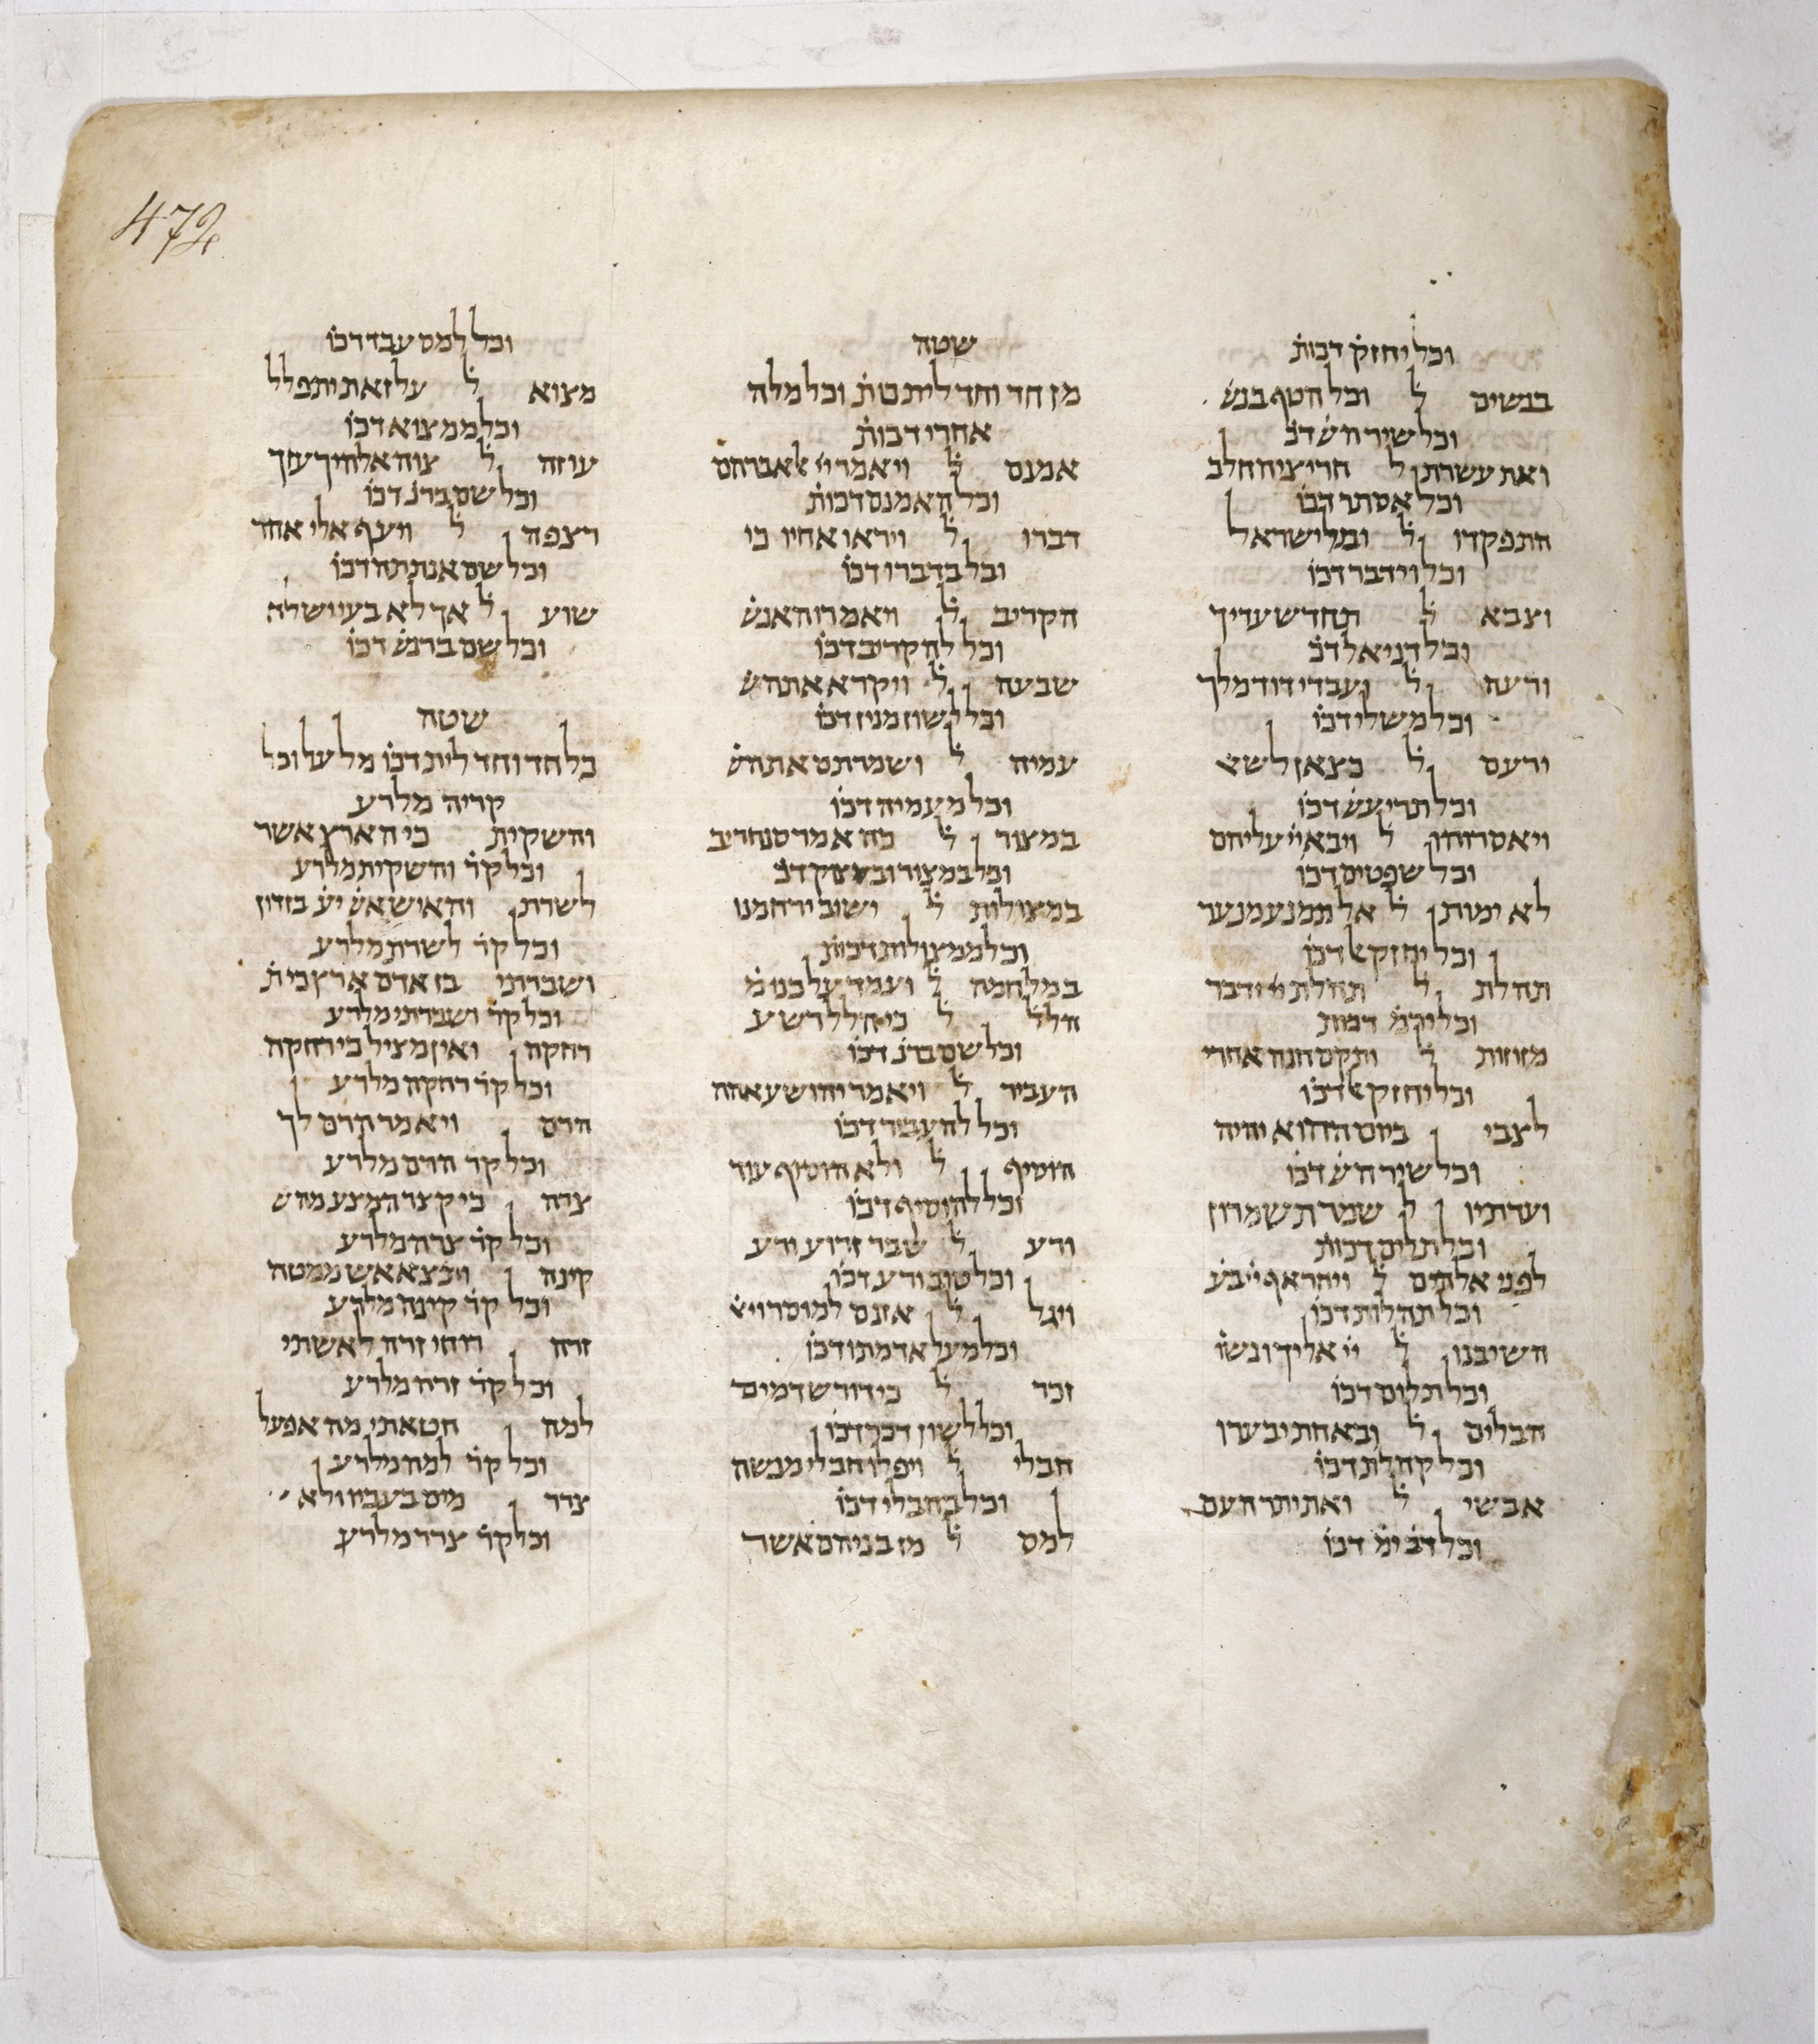 472
וכל יחזק דכות
בנשים ל וכל הטף בנש
וכל שיר הש דכ
ואת עשרת ל חריצי החלב
וכל אסתר דכו
התפקדו ל ובני ישראל
וכל וידבר דכו
וצבא ל תחדש עדיך
וכל דניאל דכ
ורעה ל ועבדי דוד מלך
וכל משלי דכו
ירעם ל כצאן לש
וכל תרי עש דכו
ויאסרוהו ל ויבא יי עליהם
וכל שפטים דכו
לא ימות ל אל תמנע מנער
וכל יחזק דכו
תהלת ל תהלת יי ידבר
דכות
מזוזות ל ותקם חנה אחרי
וכל יחזק דכו
לצבי ביום ההוא יהיה
וכל שיר הש דכו
ועדתיו ל שמרת שמרון
וכל תלים דכות
לפני אלהים ל ויחר אף יי בע
וכל תהלות דכו
השיבנו ל יי אליך ונשו
וכל תלים דכו
הבלים ל ובאחת יבערו
וכל קהלת דכו
אבשי ל ואת יתר העם
וכל דב ימ דכו
שטה
מן חד וחד לית כות וכל מלה
אחרי דכות
אמנם ל ויאמר יי אל אברהם
וכל האמנם דכות
דברו ל ויראו אחיו כי
וכל בדברו דכו
הקריב ל ויאמרו האנש
וכל להקריב דכו
שבעה ל ויקרא אתה ש
וכל לשון מנין דכו
עמיה ל ושמרתם את הש
וכל מעמיה דכו
במצור ל כה אמר סנחריב
וכל במצור ובמצוק דכ
במצולות ל ישוב ירחמנו
וכל ממצולות דכות
במלחמה ל ועמד על בנומ
הלל ל כי הלל רשע
וכל שם ברנ דכו
העביר ל ויאמר יהושע אהה
וכל להעביר דכו
הוסיף ל ולא הוסיף עוד
וכל להוסיף דכו
ורע ל שבר זרוע ורע
וכל טוב ורע דכו
ויגל ל אזנם למוסר ויא
וכל מעל אדמתו דכו
זכר ל כי דורש דמים
וכל לשון דכר דכו
חבלי ל ויפלו חבלי מנשה
וכל בחבלי דכו
למס ל מן בניהם אשר
וכל למס עבד דכו
מצוא ל על זאת יתפלל
וכל ממצוא דכו
עוזה ל צוה אלהיך עזך
וכל שם ברנ דכו
רצפה ל ויעף אלי אחד
וכל שם אנתתה דכו
שוע ל אך לא בעי ושלח
וכל שם ברנש דכו
שטה
כל חד וחד לית דכו מלעל וכל
קריה מלרע
והשקית כי הארץ אשר
וכל קר והשקית מלרע
לשרת והאיש אש יע בזדון
וכל קר לשרת מלרע
ושברתי בן אדם ארץ כי ת
וכל קר ושברתי מלרע
רחקה ואין מציל כי רחקה
וכל קר רחקה מלרע
הרם ויאמר הרם לך
וכל קר הרם מלרע
צרה כי קצר המצע מהש
וכל קר צרה מלרע
קינה ותצא אש ממטה
וכל קר קינה מלרע
זרה רוחי זרה לאשתי
וכל קר זרה מלרע
למה חטאתי מה אפעל
וכל קר למה מלרע
צרר מים בעביו ולא
וכל קר צרר מלרע